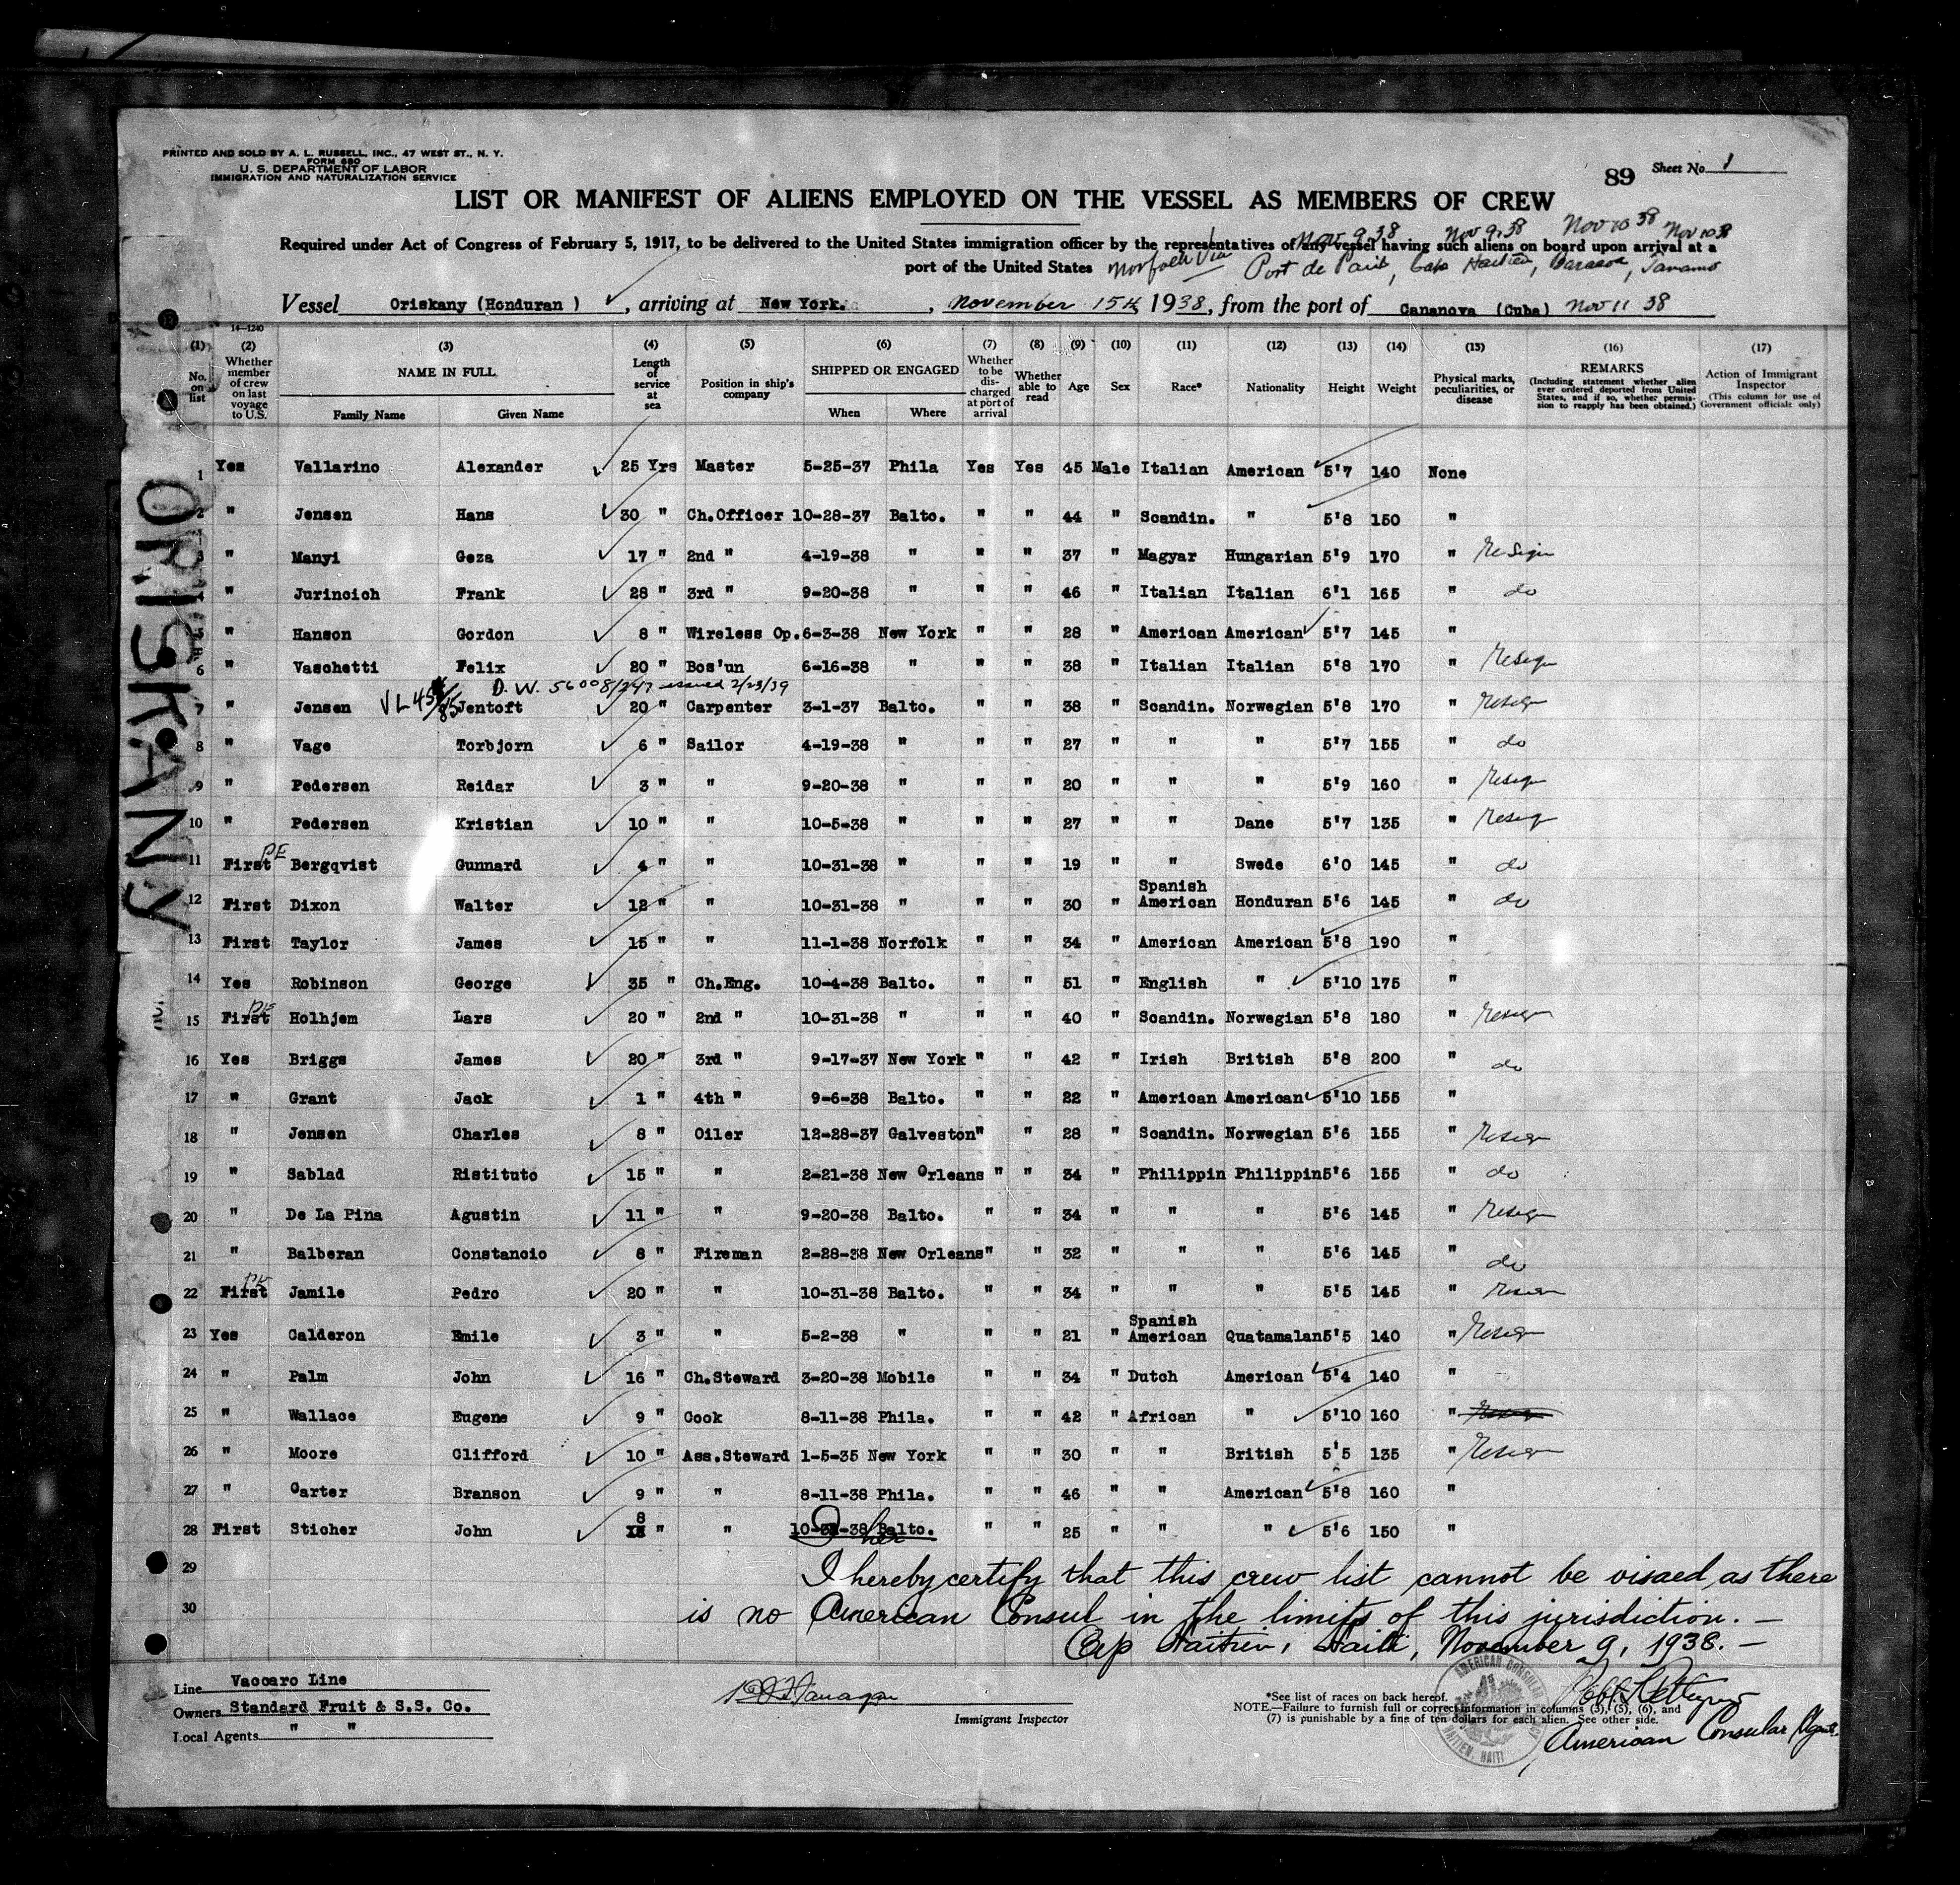 PRINTED AND SOLD BY A. L. RUSSELL, INC., 47 WEST ST., N. Y.
FORM 680
U. S. DEPARTMENT OF LABOR
IMMIGRATION AND NATURALIZATION SERVICE
89 Sheet No. 1
LIST OR MANIFEST OF ALIENS EMPLOYED ON THE VESSEL AS MEMBERS OF CREW
Nov 9 38 Nov 9 38 Nov 10 38 Nov 10 38
Required under Act of Congress of February 5, 1917, to be delivered to the United States immigration officer by the representatives of any vessel having such aliens on board upon arrival at a
port of the United States Norfolk Via Port de Paix, Cap Haitien, Baracoa, Tanamo
Vessel Oriskany (Honduran ), arriving at New York., November 15th, 1938, from the port of Cananova (Cuba) Nov 11 38
14—1240
(1) (2) (3) (4) (5) (6) (7) (8) (9) (10) (11) (12) (13) (14) (15) (16) (17)
No. on list
Whether member of crew on last voyage to U.S.
NAME IN FULL
Family Name Given Name
Length of service at sea
Position in ship's company
SHIPPED OR ENGAGED
When Where
Whether to be discharged at port of arrival
Whether able to read
Age
Sex
Race*
Nationality
Height
Weight
Physical marks, peculiarities, or disease
REMARKS
(Including statement whether alien ever ordered deported from United States, and if so, whether permission to reapply has been obtained.)
Action of Immigrant Inspector
(This column for use of Government officials only)
ORISKANY
1 Yes Vallarino Alexander 25 Yrs Master 5-25-37 Phila Yes Yes 45 Male Italian American 5'7 140 None
2 " Jensen Hans 30 " Ch.Officer 10-28-37 Balto. " " 44 " Scandin. " 5'8 150 "
3 " Manyi Geza 17 " 2nd " 4-19-38 " " " 37 " Magyar Hungarian 5'9 170 " Resign
4 " Jurincich Frank 28 " 3rd " 9-20-38 " " " 46 " Italian Italian 6'1 165 " do
5 " Hanson Gordon 8 " Wireless Op. 6-3-38 New York " " 28 " American American 5'7 145 "
6 " Vaschetti Felix 20 " Bos'un 6-16-38 " " " 38 " Italian Italian 5'8 170 " Resign
D. W. 56008/247 issued 2/23/39
7 " Jensen Jentoft 20 " Carpenter 3-1-37 Balto. " " 38 " Scandin. Norwegian 5'8 170 " Resign
8 " Vage Torbjorn 6 " Sailor 4-19-38 " " " 27 " " " 5'7 155 " do
9 " Pedersen Reidar 3 " " 9-20-38 " " " 20 " " " 5'9 160 " Resign
10 " Pedersen Kristian 10 " " 10-5-38 " " " 27 " " Dane 5'7 135 " Resign
11 First PE Bergqvist Gunnard 4 " " 10-31-38 " " " 19 " " Swede 6'0 145 " do
12 First Dixon Walter 12 " " 10-31-38 " " " 30 " Spanish American Honduran 5'6 145 " do
13 First Taylor James 15 " " 11-1-38 Norfolk " " 34 " American American 5'8 190 "
14 Yes Robinson George 35 " Ch.Eng. 10-4-38 Balto. " " 51 " English " 5'10 175 "
15 First PE Holhjem Lars 20 " 2nd " 10-31-38 " " " 40 " Scandin. Norwegian 5'8 180 " Resign
16 Yes Briggs James 20 " 3rd " 9-17-37 New York " " 42 " Irish British 5'8 200 " do
17 " Grant Jack 1 " 4th " 9-6-38 Balto. " " 22 " American American 5'10 155 "
18 " Jensen Charles 8 " Oiler 12-28-37 Galveston " " 28 " Scandin. Norwegian 5'6 155 " Resign
19 " Sablad Ristituto 15 " " 2-21-38 New Orleans " " 34 " Philippin Philippin 5'6 155 " do
20 " De La Pina Agustin 11 " " 9-20-38 Balto. " " 34 " " " 5'6 145 " Resign
21 " Balberan Constancio 8 " Fireman 2-28-38 New Orleans " " 32 " " " 5'6 145 " do
22 First PE Jamile Pedro 20 " " 10-31-38 Balto. " " 34 " " " 5'5 145 " Resign
23 Yes Calderon Emile 3 " " 5-2-38 " " " 21 " Spanish American Quatamalan 5'5 140 " Resign
24 " Palm John 16 " Ch.Steward 3-20-38 Mobile " " 34 " Dutch American 5'4 140 "
25 " Wallace Eugene 9 " Cook 8-11-38 Phila. " " 42 " African " 5'10 160 "
26 " Moore Clifford 10 " Ass.Steward 1-5-35 New York " " 30 " " British 5'5 135 " Resign
27 " Carter Branson 9 " " 8-11-38 Phila. " " 46 " " American 5'8 160 "
28 First Sticher John 8 " " 10-31-38 Balto. " " 25 " " " 5'6 150 "
29
30
I hereby certify that this crew list cannot be visaed, as there
is no American Consul in the limits of this jurisdiction. —
Cap Haitien, Haiti, November 9, 1938. —
Line Vaccaro Line
Owners Standard Fruit & S.S. Co.
Local Agents " "
Immigrant Inspector
*See list of races on back hereof.
NOTE.—Failure to furnish full or correct information in columns (3), (5), (6), and
(7) is punishable by a fine of ten dollars for each alien. See other side.
American Consular Agent.